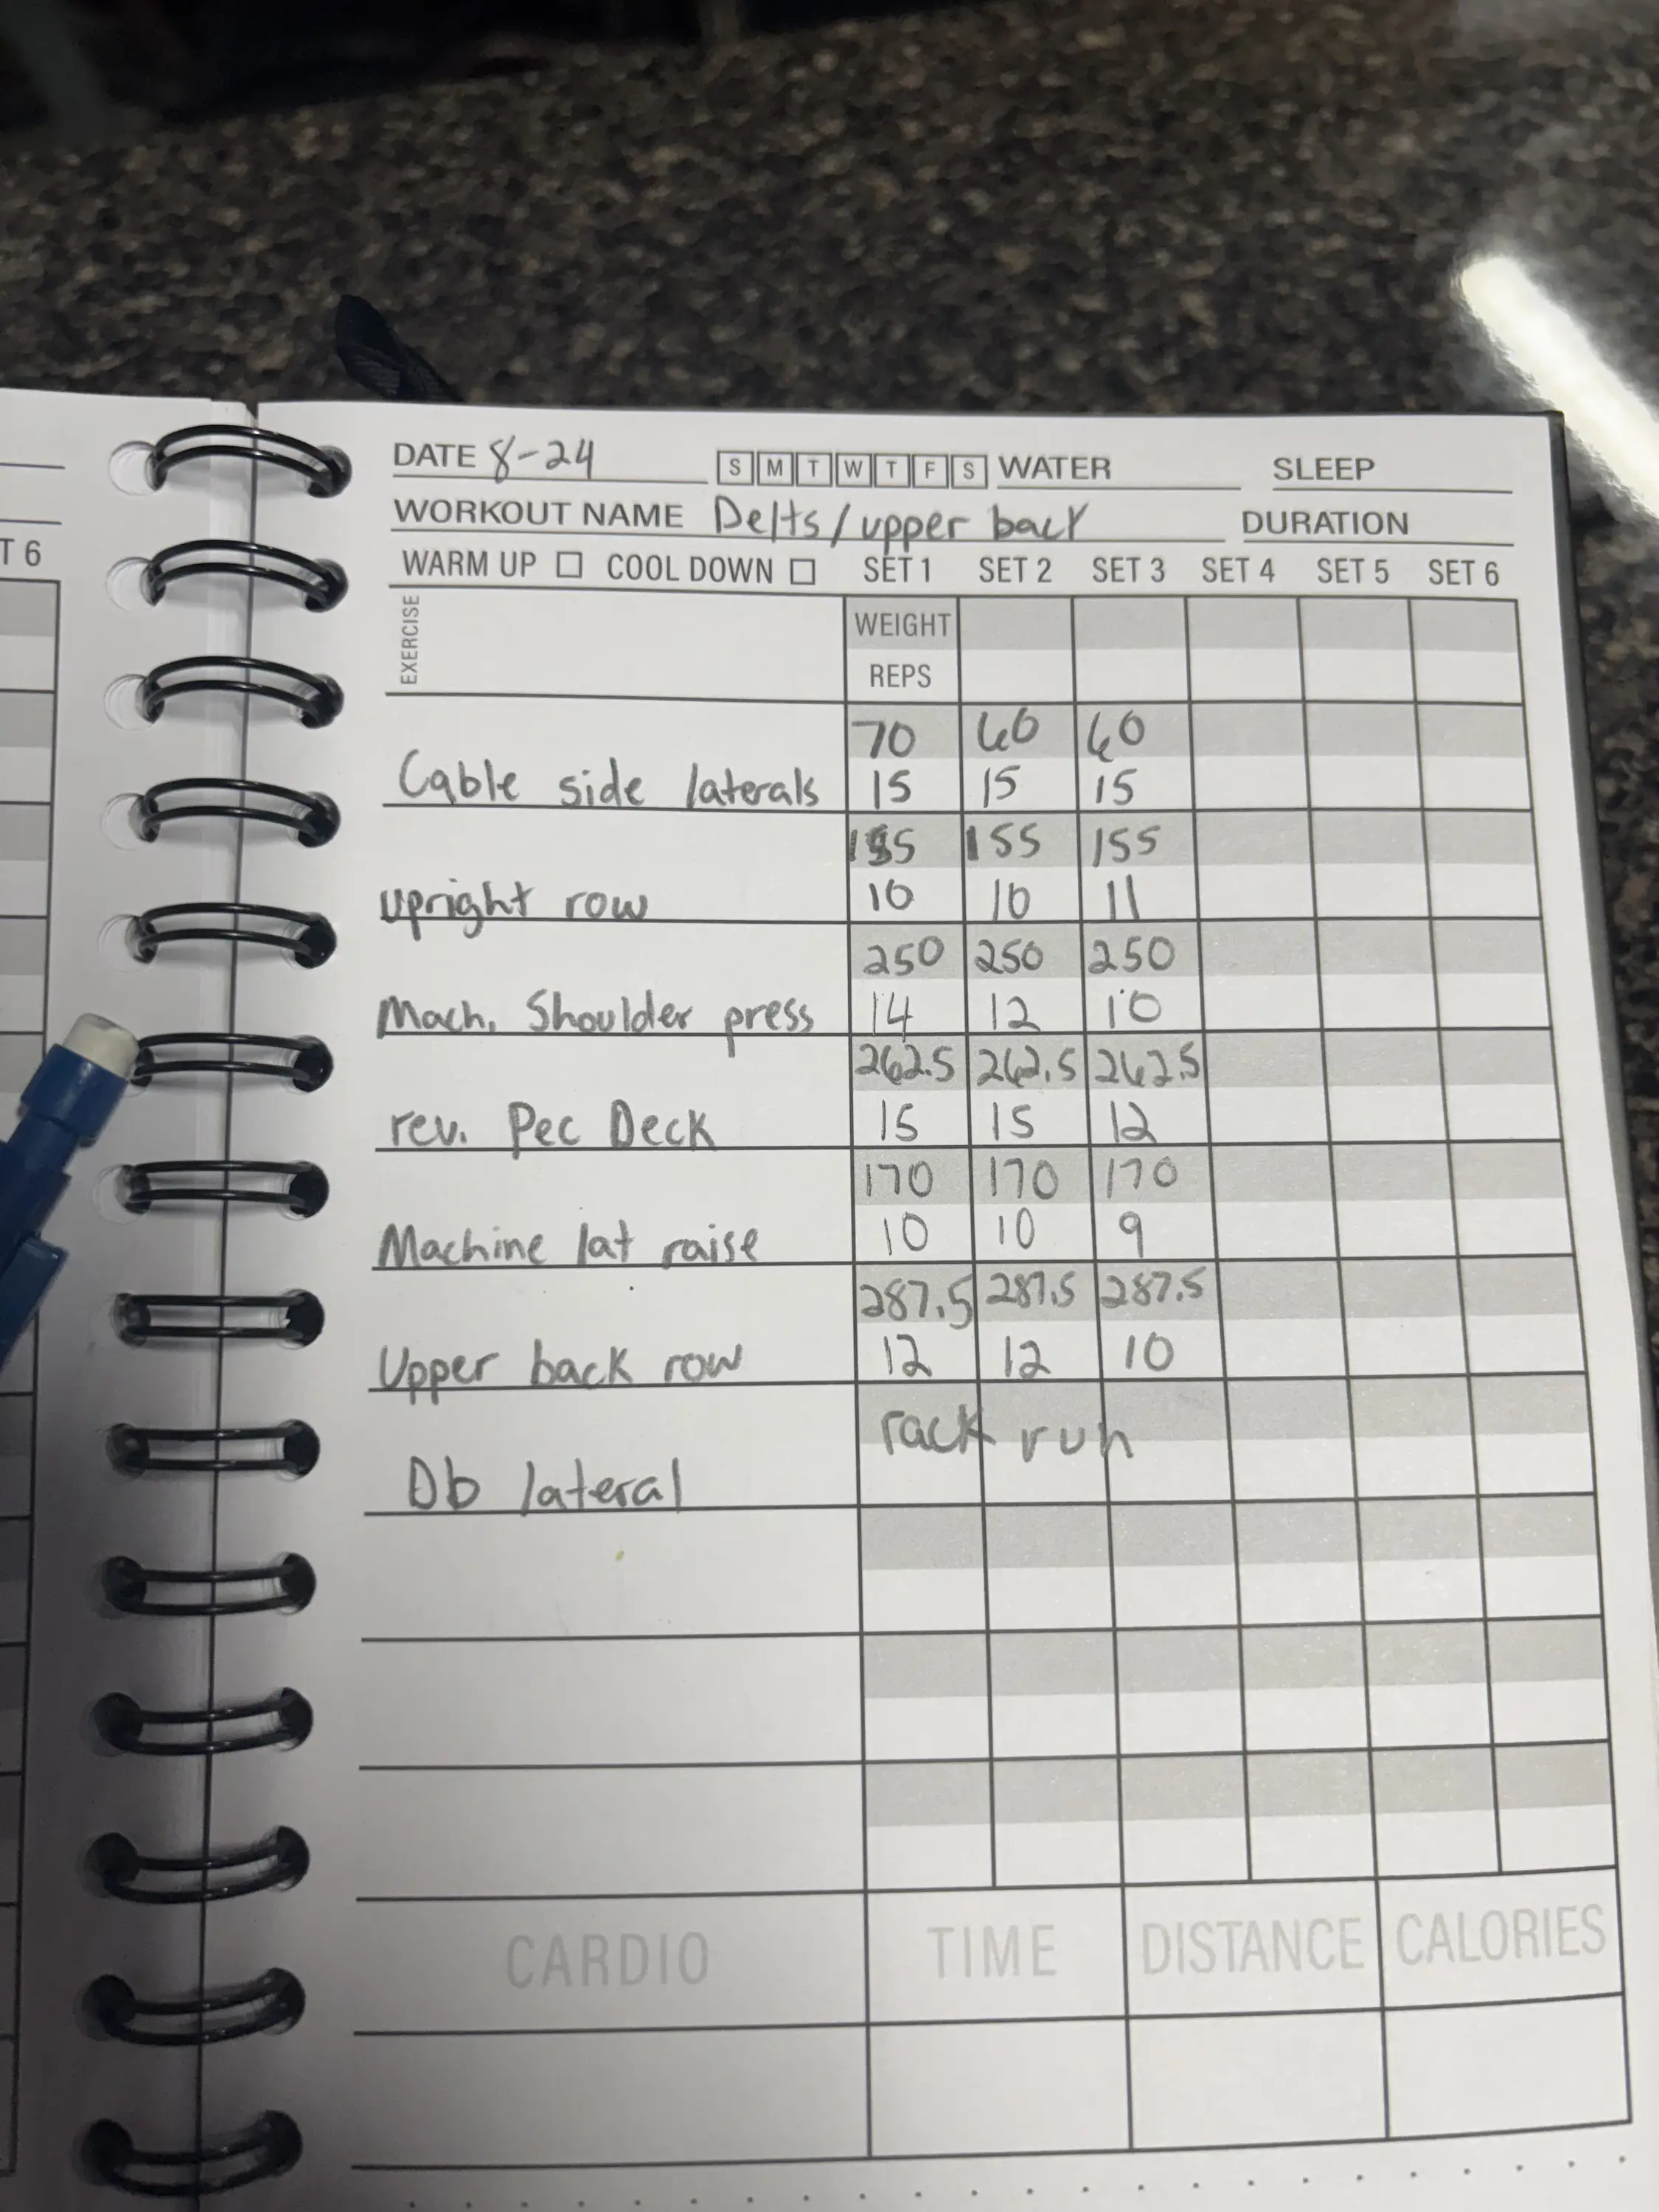 T 6
DATE 8-24 S M T W T F S WATER SLEEP
WORKOUT NAME Delts/upper back DURATION
WARM UP COOL DOWN SET 1 SET 2 SET 3 SET 4 SET 5 SET 6
EXERCISE WEIGHT
REPS
70 60 60
Cable side laterals 15 15 15
155 155 155
upright row 10 10 11
250 250 250
Mach. Shoulder press 14 12 10
262.5 262.5 262.5
rev. Pec Deck 15 15 12
170 170 170
Machine lat raise 10 10 9
287.5 287.5 287.5
Upper back row 12 12 10
rack run
Db lateral
CARDIO TIME DISTANCE CALORIES